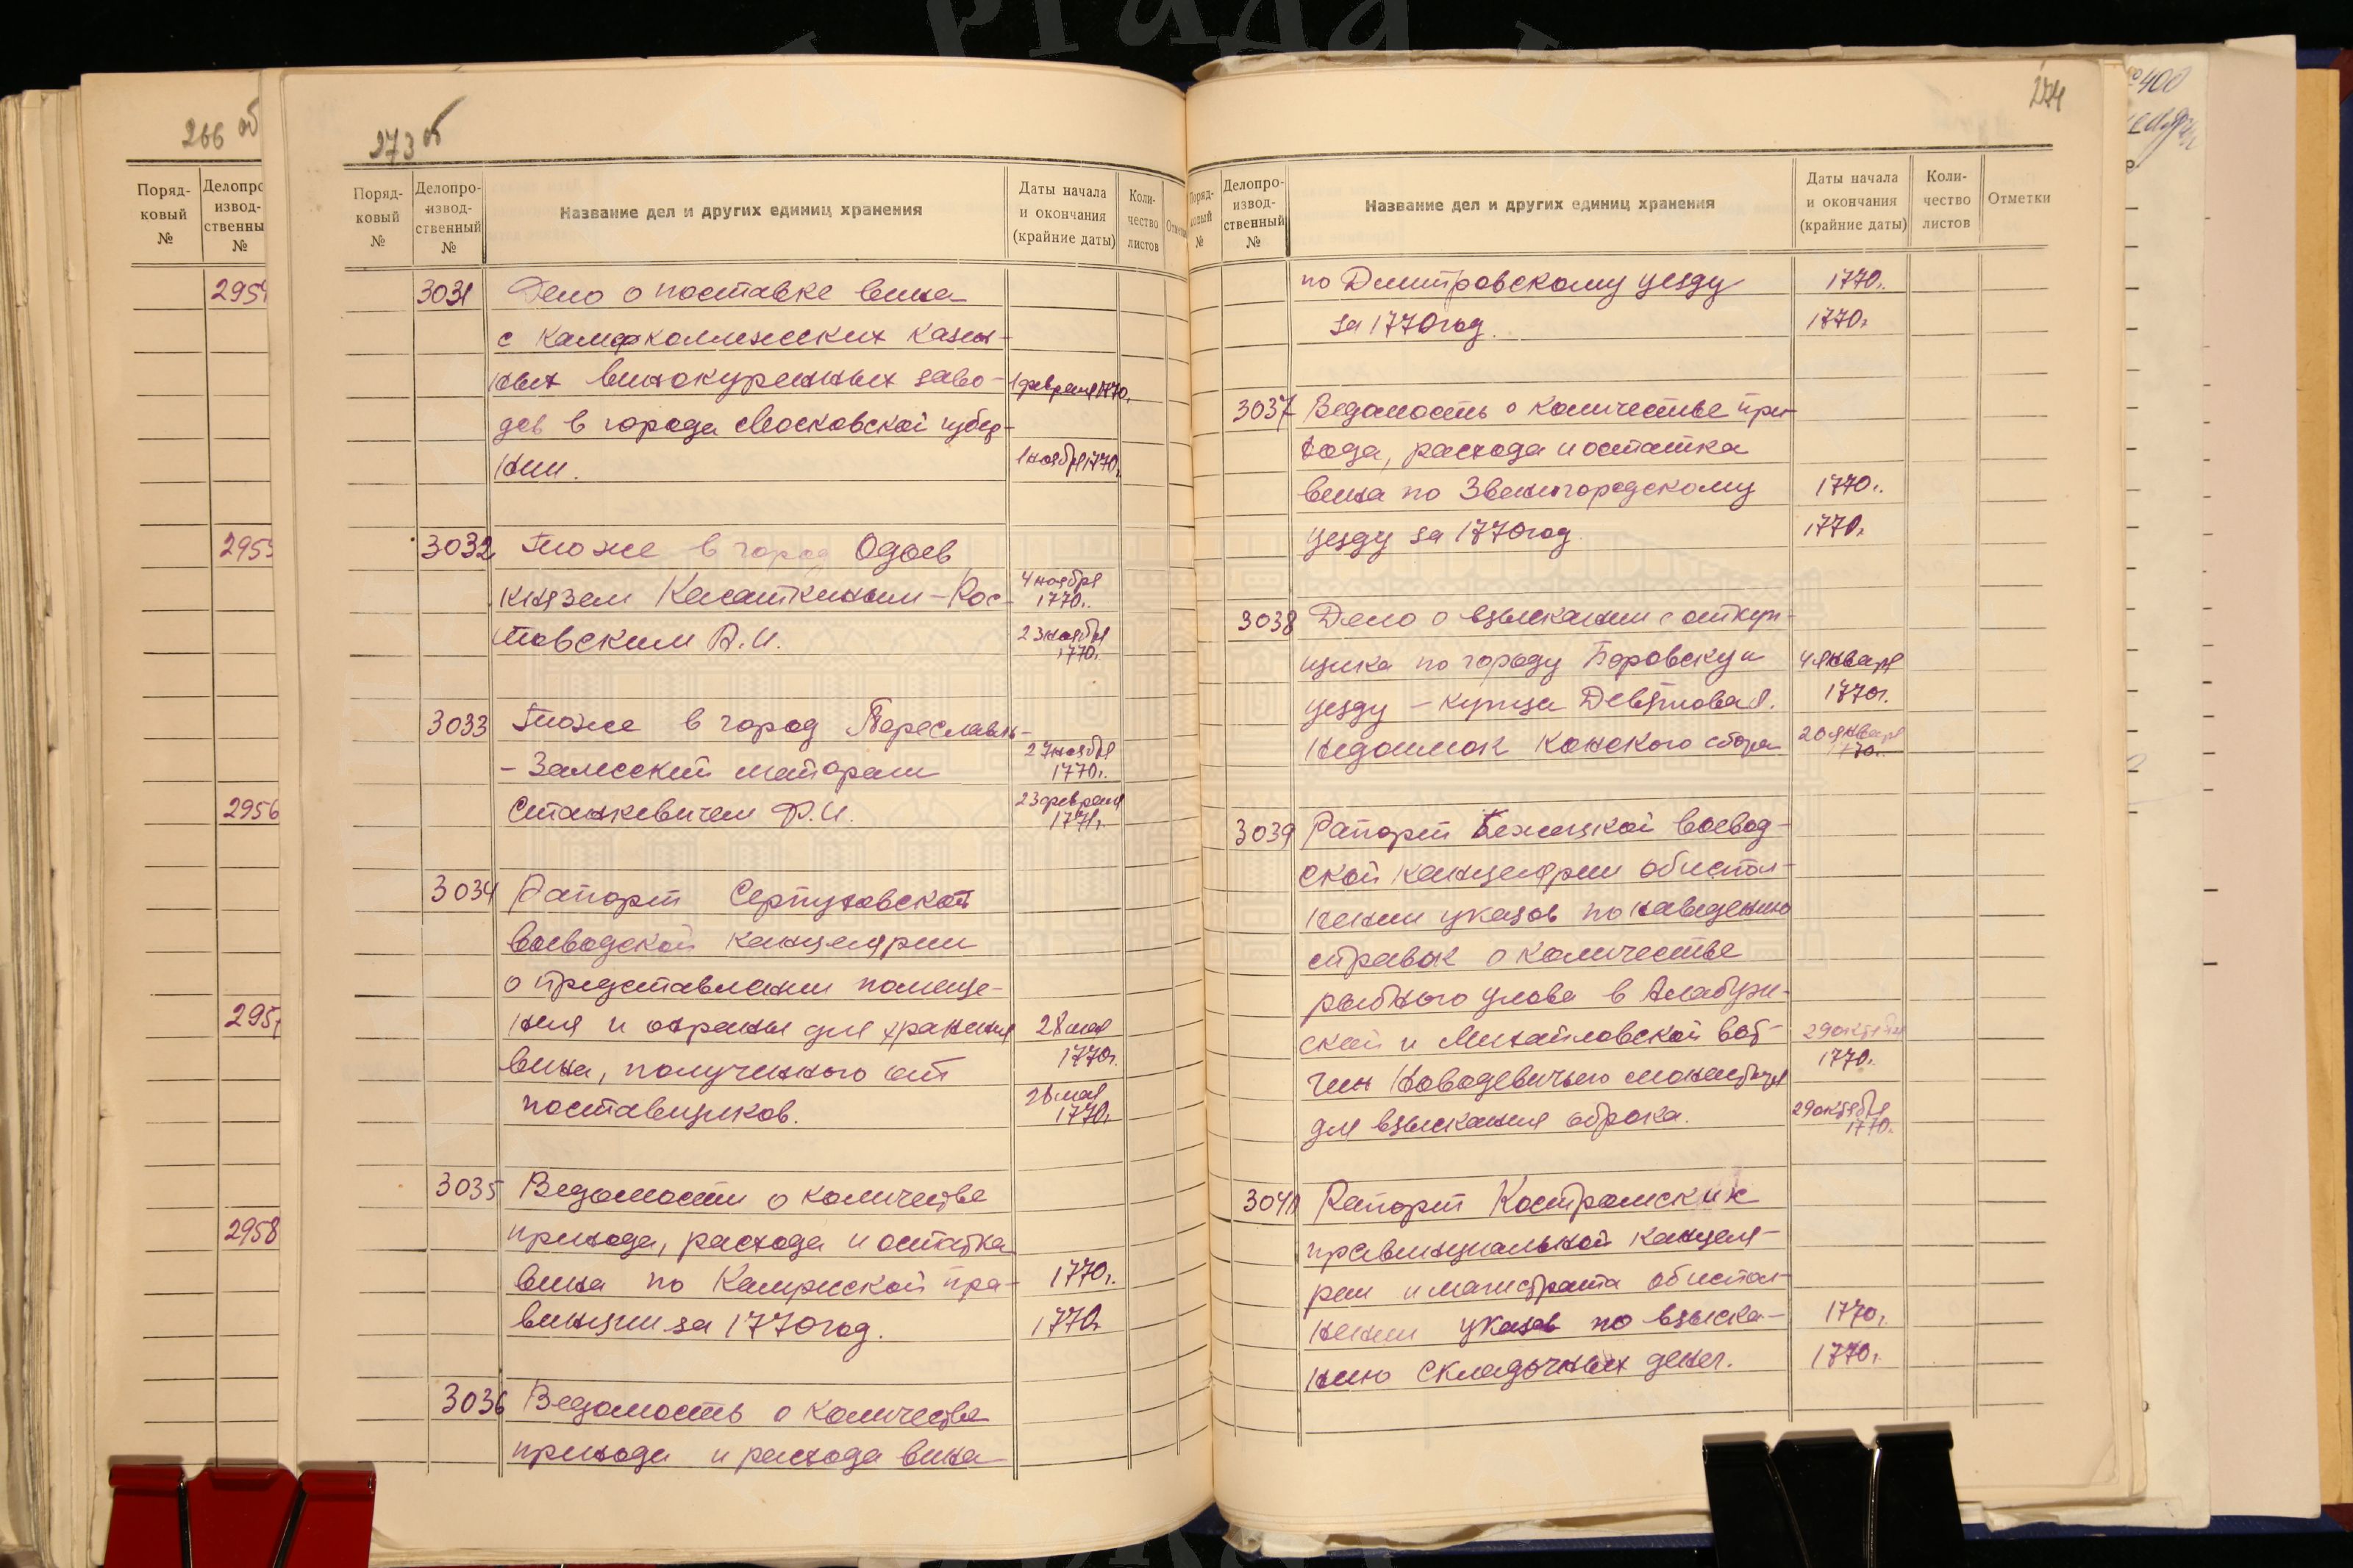 ргада
266 об
Поряд-
ковый
№
Делопро
извод-
ственны
№
2955
2956
2958
273 об
Поряд-
ковый
№
Делопро-
извод-
ственный
№
Название дел и других единиц хранения
Даты начала
и окончания
(крайние даты)
Коли-
чество
листов
3031 Дело о поставке вина
с камерколлежских казен-
ных винокуренных заво-
1 февраля 1770г.
дов в города Московской губер-
нии.
1 ноября 1770г.
3032 То же в город Одоев
князем Касаткиным-Рос-
4 ноября
1770г.
товским А.И.
23 ноября
1770г.
3033 То же в город Переславль-
- Залесский майором
27 ноября
1770г.
Станкевичем Ф.И.
23 февраля
1771г.
3034 Рапорт Серпуховской
воеводской канцелярии
о представлении помеще-
ния и охраны для хранения
28 мая
1770г.
вина, полученного от
поставщиков.
28 мая
1770г.
3035 Ведомости о количестве
прихода, расхода и остатка
вина по Калужской про-
1770г.
винции за 1770 год.
1770г.
3036 Ведомость о количестве
прихода и расхода вина
274
Поряд-
ковый
№
Делопро-
извод-
ственный
№
Название дел и других единиц хранения
Даты начала
и окончания
(крайние даты)
Коли-
чество
листов
Отметки
по Дмитровскому уезду 1770г.
за 1770 год. 1770г.
3037 Ведомость о количестве при-
хода, расхода и остатка
вина по Звенигородскому 1770г.
уезду за 1770 год 1770г.
3038 Дело о взыскании с откуп-
щика по городу Боровску и
4 января
1770г.
уезду - купца Девятова Я.
недоимок конского сбора
20 января
1770г.
3039 Рапорт Бежецкой воевод-
ской канцелярии об испол-
нении указов по наведению
справок о количестве
рыбного улова в
ской и Михайловской вот-
29 октября
1770г.
чин Новодевичьего монастыря
29 октября
1770г.
для взыскания оброка.
3040 Рапорт Костромских
провинциальной канцеля-
рии и магистрата об испол-
нении указов по взыска- 1770г.
нию складочных денег. 1770г.